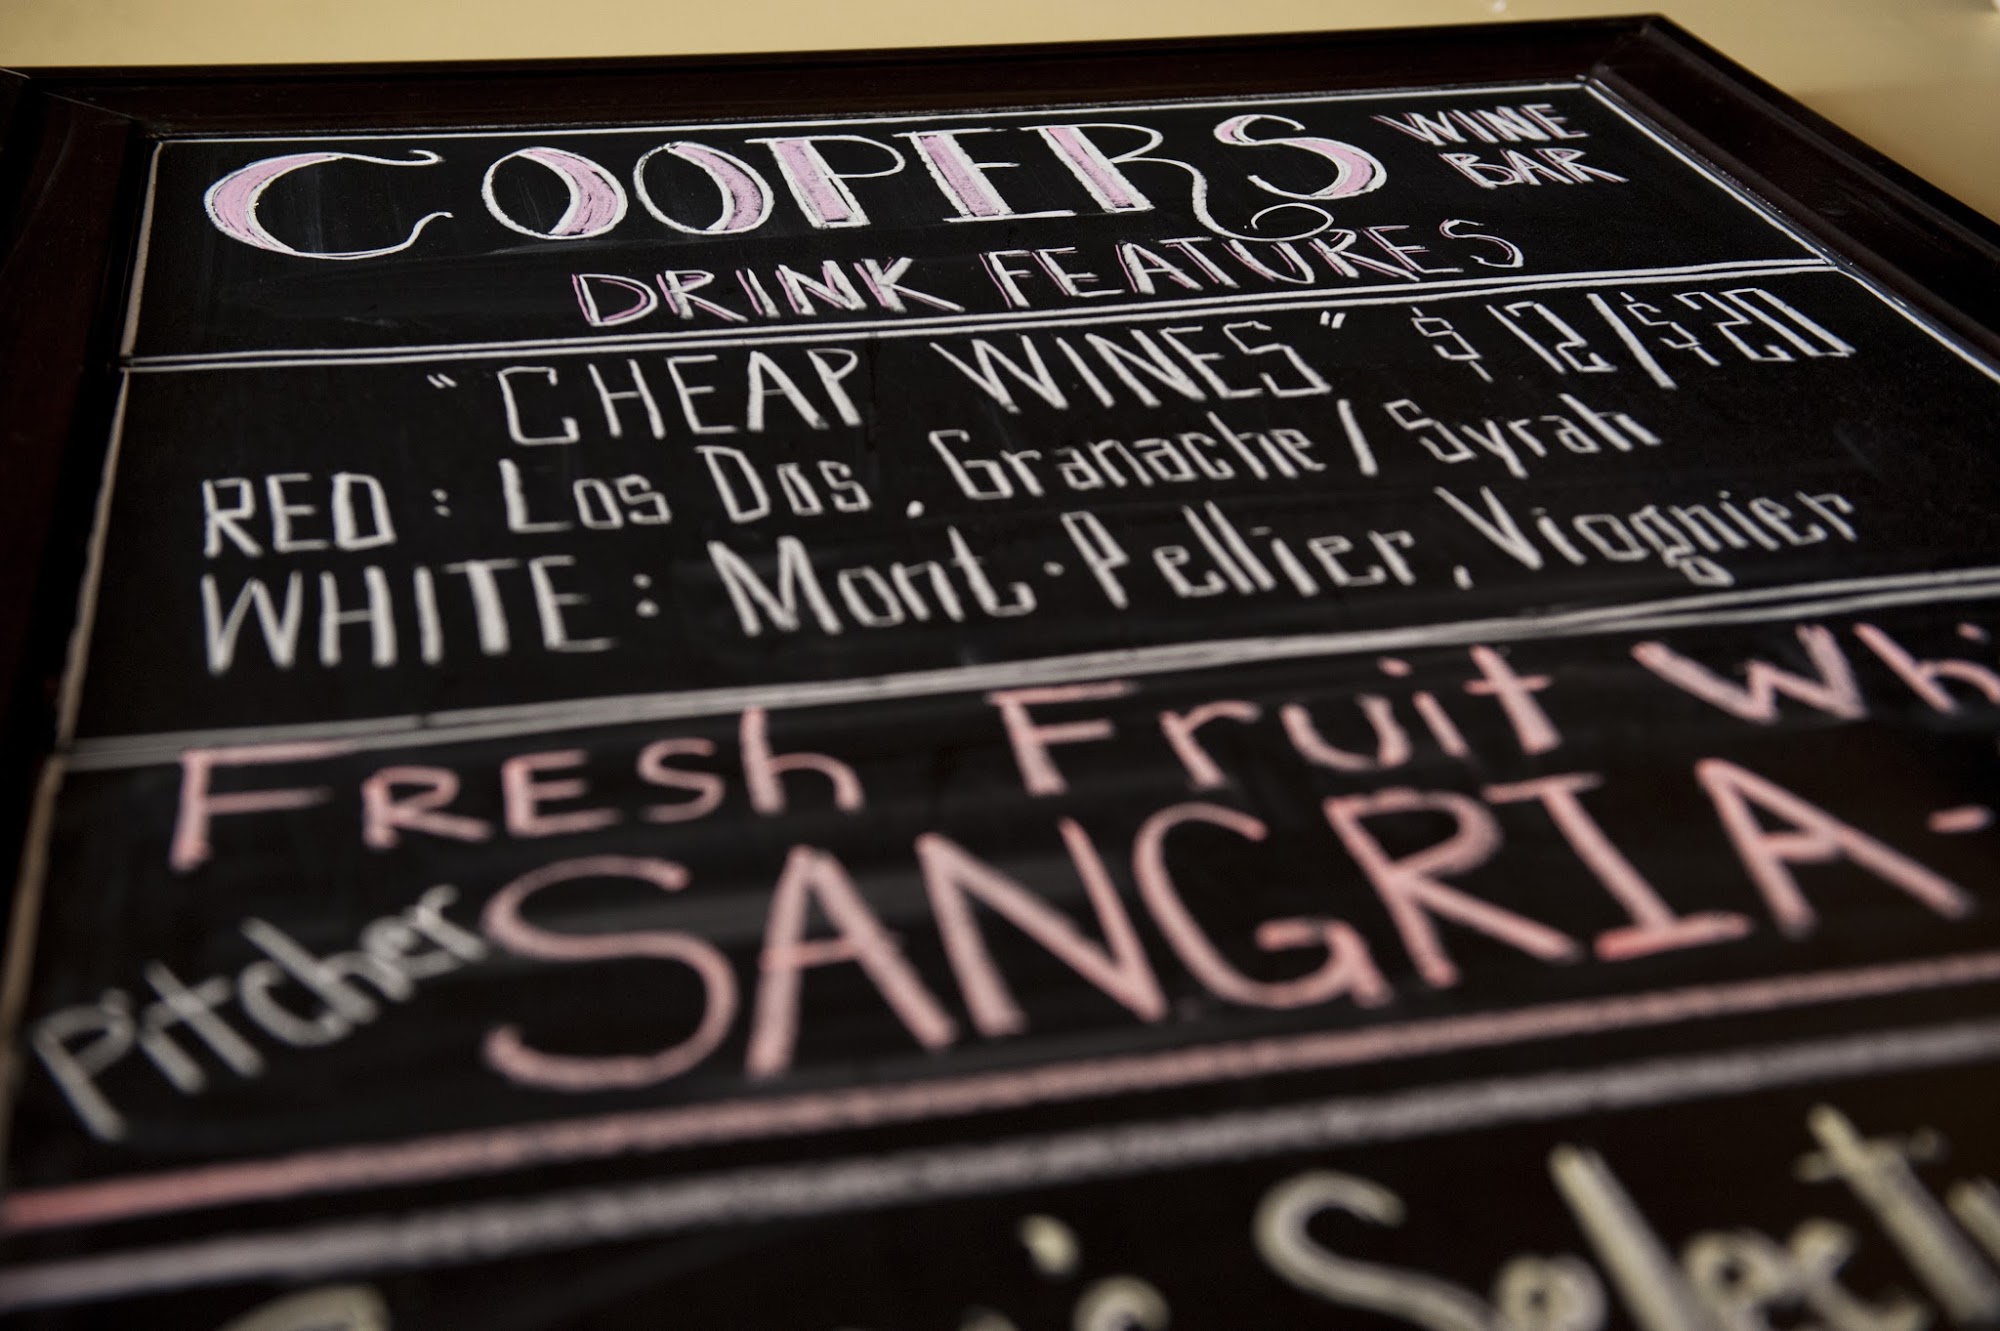 COOPERS WINE BAR
DRINK FEATURES
"CHEAP WINES" $12/$20
RED: Los Dos, Granache/Syrah
WHITE: Mont-Pellier, Viognier
FRESh Fruit Whi
Pitcher SANGRIA -